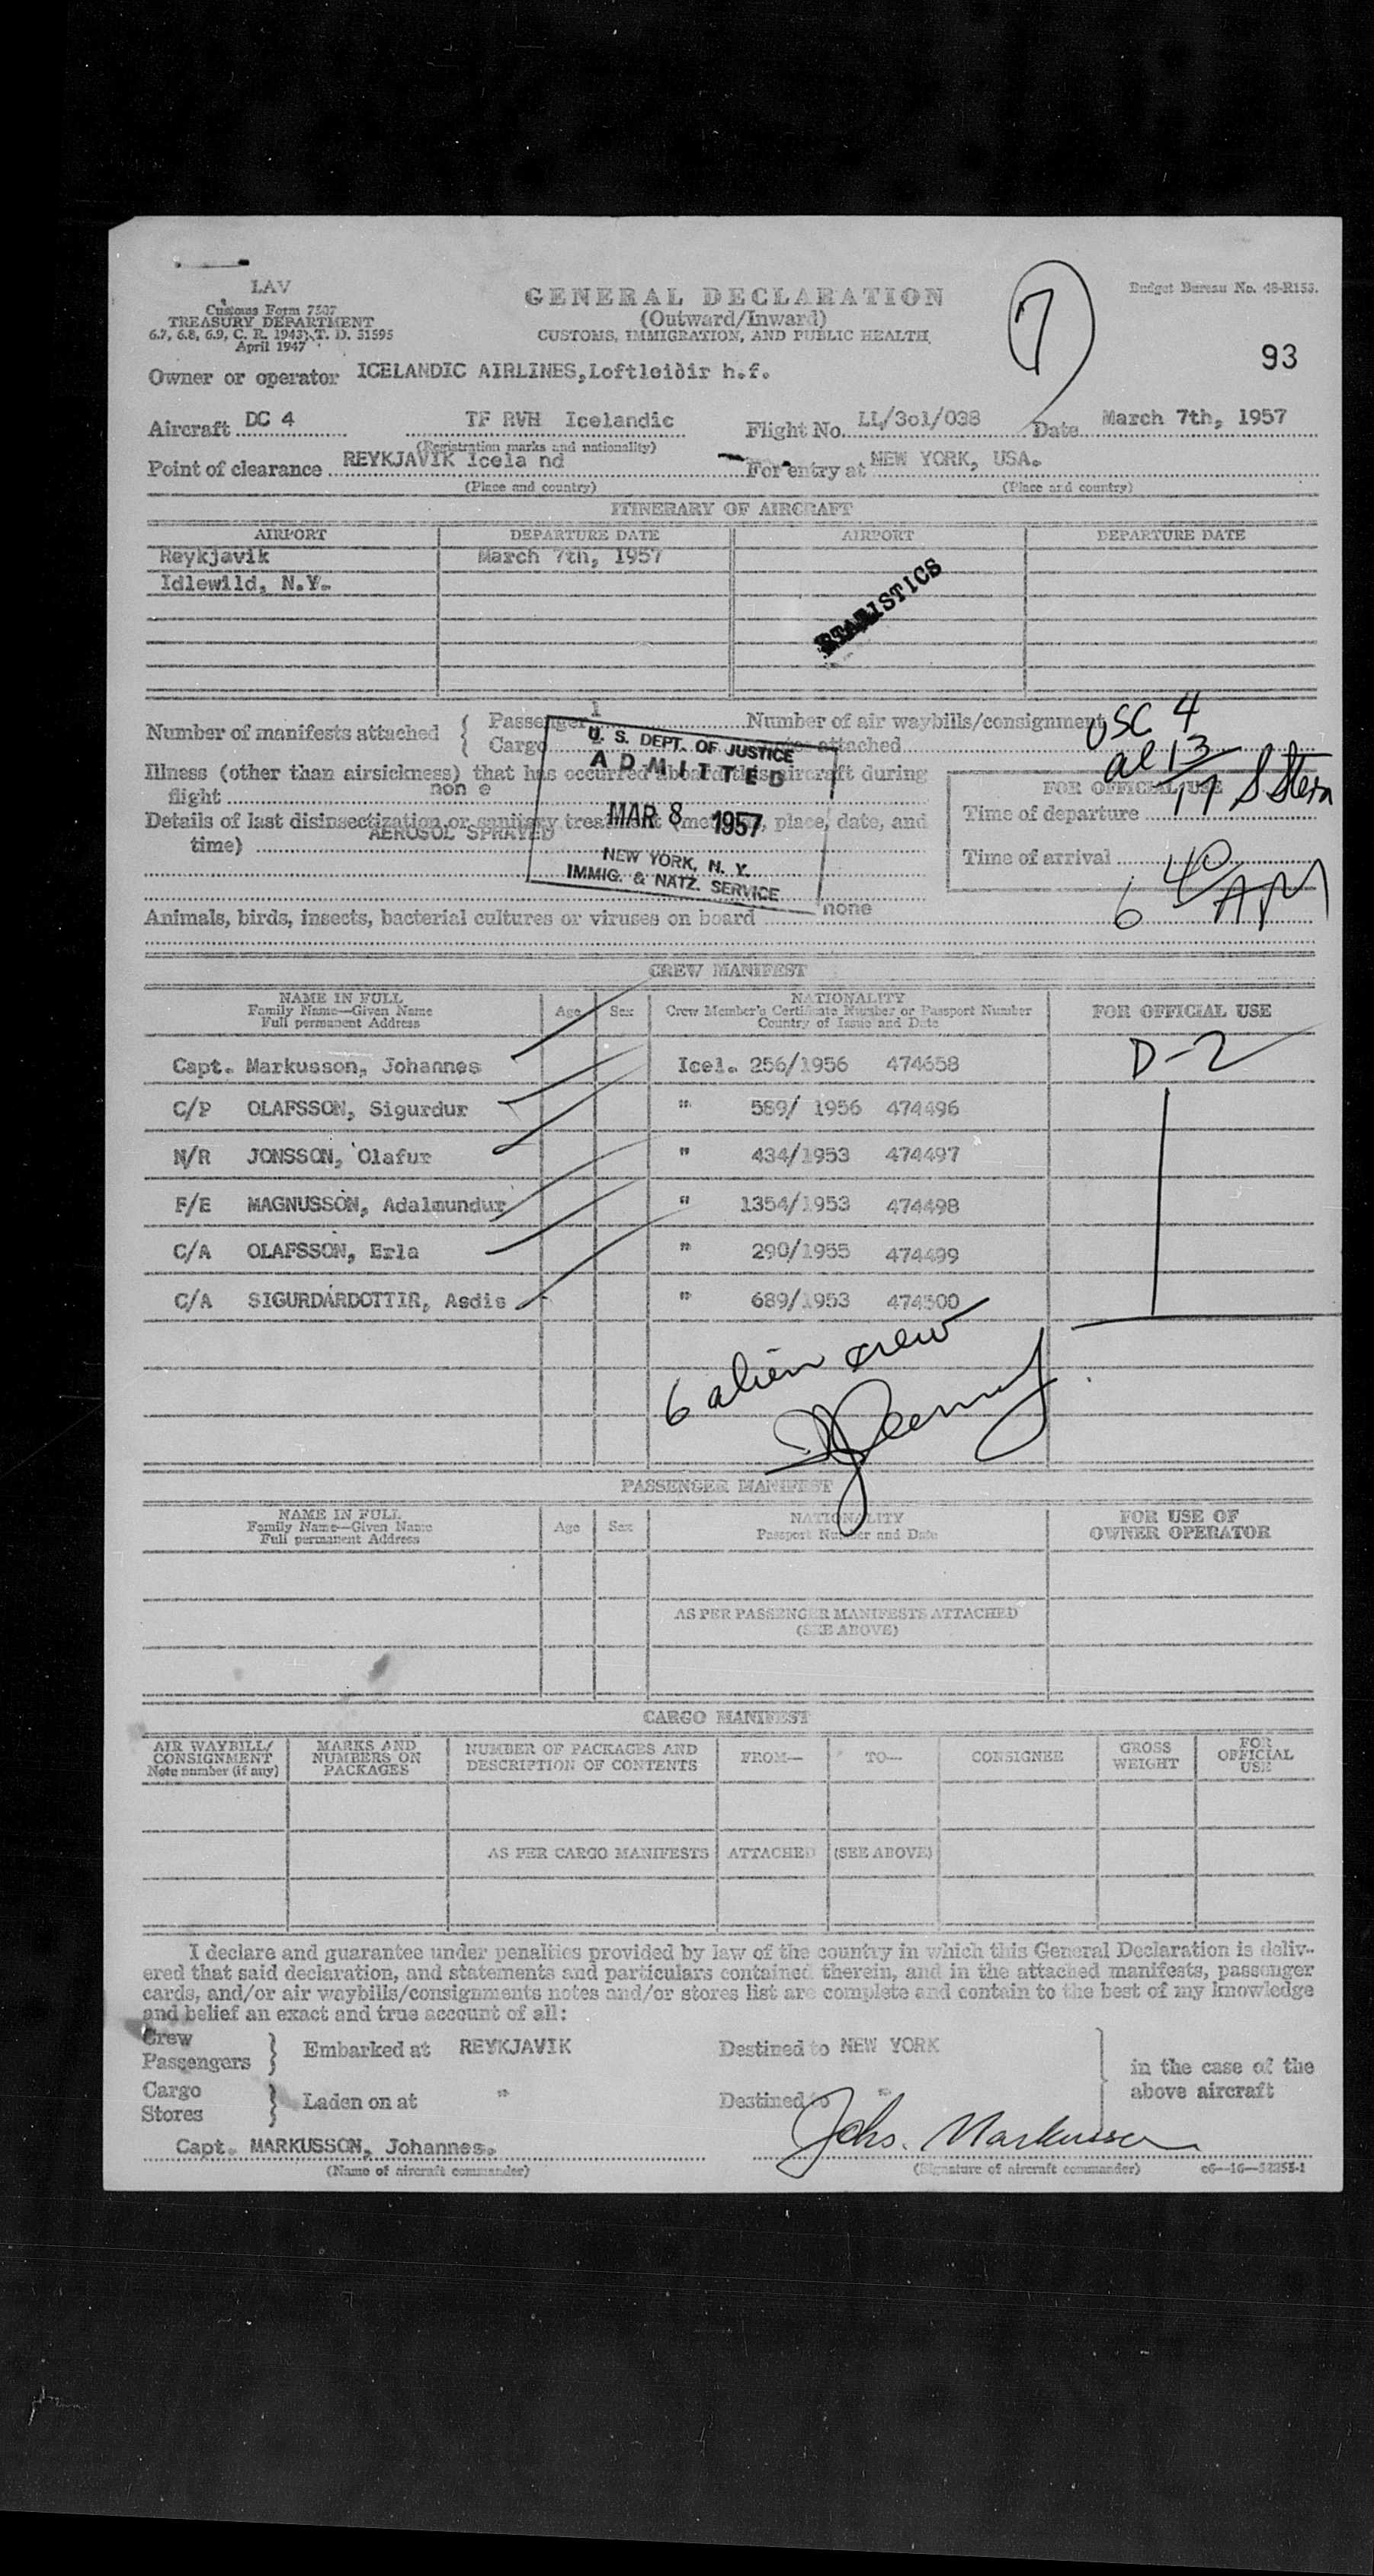 LAV
Customs Form 7507
TREASURY DEPARTMENT
6.7, 6.8, 6.9, C. R. 1943; T. D. 51595
April 1947
GENERAL DECLARATION
(Outward/Inward)
CUSTOMS, IMMIGRATION, AND PUBLIC HEALTH
7
Budget Bureau No. 48-R153.
93
Owner or operator ICELANDIC AIRLINES, Loftleiðir h.f.
Aircraft DC 4 TF RVH Icelandic Flight No. LL/3o1/038 Date March 7th, 1957
(Registration marks and nationality)
Point of clearance REYKJAVIK Icela nd For entry at NEW YORK, USA.
(Place and country) (Place and country)
ITINERARY OF AIRCRAFT
AIRPORT DEPARTURE DATE AIRPORT DEPARTURE DATE
Reykjavik March 7th, 1957
Idlewild, N.Y.
STATISTICS
Number of manifests attached { Passenger 1 Number of air waybills/consignment
Cargo attached
USC 4
al 13
17 S Stern
Illness (other than airsickness) that has occurred aboard this aircraft during
flight non e
Details of last disinsectization or sanitary treatment (method, place, date, and
time) AEROSOL SPRAYED
U. S. DEPT. OF JUSTICE
ADMITTED
MAR 8 1957
NEW YORK, N. Y.
IMMIG. & NATZ. SERVICE
FOR OFFICIAL USE
Time of departure
Time of arrival
6 40 AM
Animals, birds, insects, bacterial cultures or viruses on board none
CREW MANIFEST
NAME IN FULL
Family Name—Given Name
Full permanent Address
Age Sex
NATIONALITY
Crew Member's Certificate Number or Passport Number
Country of Issue and Date
FOR OFFICIAL USE
Capt. Markusson, Johannes Icel. 256/1956 474658 D-2
C/P OLAFSSON, Sigurdur " 589/ 1956 474496
N/R JONSSON, Olafur " 434/1953 474497
F/E MAGNUSSON, Adalmundur " 1354/1953 474498
C/A OLAFSSON, Erla " 290/1955 474499
C/A SIGURDARDOTTIR, Asdis " 689/1953 474500
6 alien crew
PASSENGER MANIFEST
NAME IN FULL
Family Name—Given Name
Full permanent Address
Age Sex
NATIONALITY
Passport Number and Date
FOR USE OF
OWNER OPERATOR
AS PER PASSENGER MANIFESTS ATTACHED
(SEE ABOVE)
CARGO MANIFEST
AIR WAYBILL/
CONSIGNMENT
Note number (if any)
MARKS AND
NUMBERS ON
PACKAGES
NUMBER OF PACKAGES AND
DESCRIPTION OF CONTENTS
FROM— TO— CONSIGNEE
GROSS
WEIGHT
FOR
OFFICIAL
USE
AS PER CARGO MANIFESTS ATTACHED (SEE ABOVE)
I declare and guarantee under penalties provided by law of the country in which this General Declaration is deliv-
ered that said declaration, and statements and particulars contained therein, and in the attached manifests, passenger
cards, and/or air waybills/consignments notes and/or stores list are complete and contain to the best of my knowledge
and belief an exact and true account of all:
Crew
Passengers } Embarked at REYKJAVIK Destined to NEW YORK
Cargo
Stores } Laden on at " Destined to "
} in the case of the
above aircraft
Capt. MARKUSSON, Johannes. Johs. Markusson
(Name of aircraft commander) (Signature of aircraft commander) c6—16—52353-1